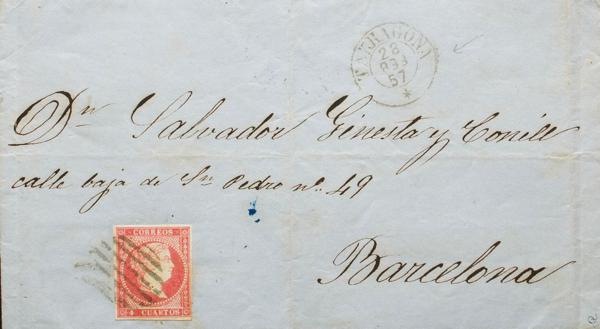 TARRAGONA
28
57
Dn Salvador Ginesta y Conill
calle baja de Sn Pedro no. 49
CORREOS
4 CUARTOS
Barcelona